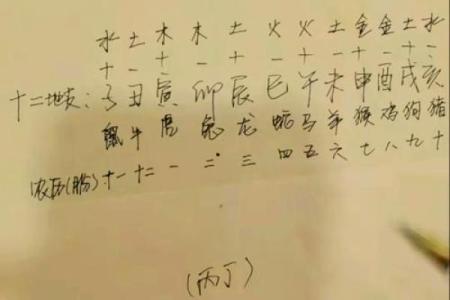 水 土 木 木 土 火 火 土 金 金 土 水
+ - + - + - + - + - + -
十二地支: 子 丑 寅 卯 辰 巳 午 未 申 酉 戌 亥
鼠 牛 虎 兔 龙 蛇 马 羊 猴 鸡 狗 猪
农历(月份) 十一 十二 一 二 三 四 五 六 七 八 九 十
(丙丁)